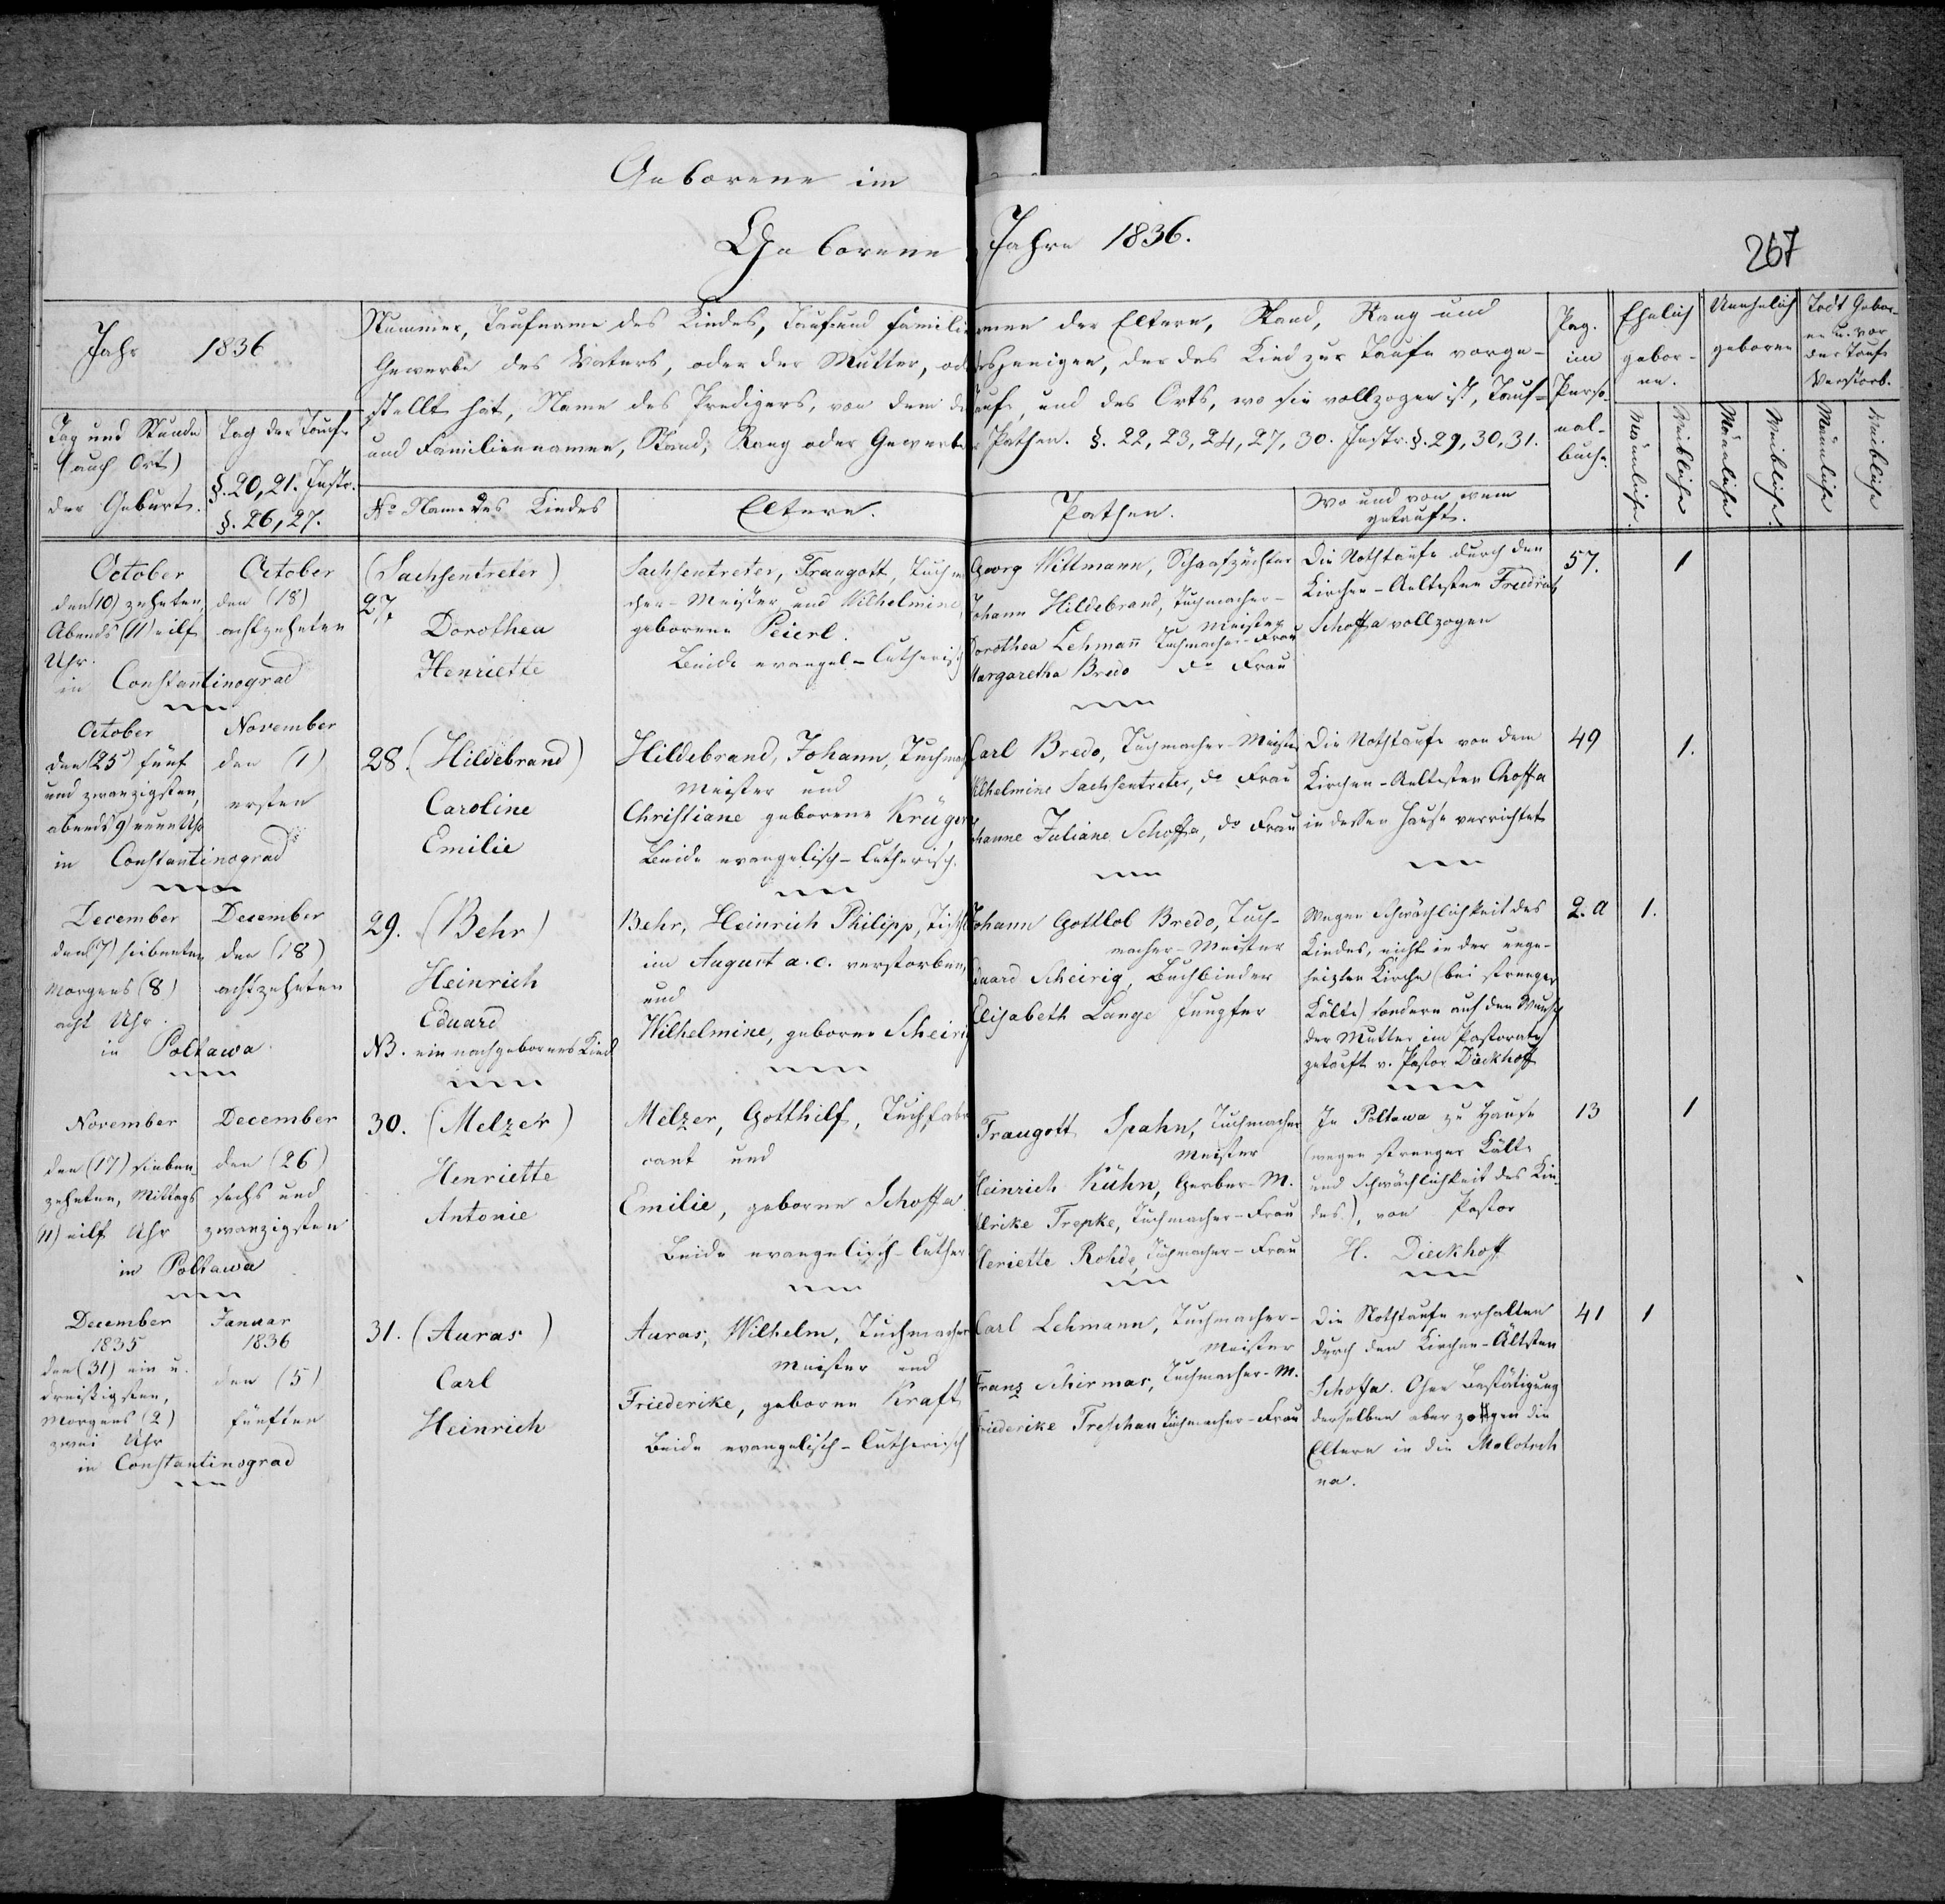 Geborene im
Geborene
Jahre 1836.
267
Jahr 1836
Tag und Stunde
(auch Ort)
der Geburt.
Tag der Taufe
§. 20, 21. Instr.
§. 26, 27.
Nummer, Taufname des Kindes, Tauf und Famili
Gewerbe des Vaters, oder der Mutter, od
stellt hat, Name des Predigers, von dem d
und Familiennamen, Stand, Rang oder Gewerbe
No Name des Kindes
Eltern.
amen der Eltern, Stand, Rang und
desjenigen, der das Kind zur Taufe vorge-
aufe, und des Orts, wo sie vollzogen ist, Tauf-
r Pathen. §. 22, 23, 24, 27, 30. Instr. §. 29, 30, 31.
Pathen.
Wo und von wem
getauft.
Pag.
im
Perso-
nal-
buche.
Ehelich
gebor-
ne.
Unehelich
geborene
Todt Gebor-
ne u. vor
der Taufe
Verstorb.
Männliche
Weibliche
Männliche
Weibliche
Männliche
Weibliche
October
den (10) zehnten
Abends (11) eilf
Uhr.
in Constantinograd
October
den (18)
achtzehnten
(Sachsentreter)
27.
Dorothea
Henriette
Sachsentreter, Traugott, Tuchma
cher-Meister und Wilhelmine,
geborene Peierl.
Beide evangel-lutherisch
Georg Wittmann, Schaafzüchter
Johann Hildebrand, Tuchmacher-
Meister
Dorothea Lehmann Tuchmacher-Frau
Margaretha Bredo do Frau
Die Nothtaufe durch den
Kirchen-Aeltesten Friedrich
Schoffa vollzogen
57.
1
October
den (25) fünf
und zwanzigsten,
abends (9) neun Uhr
in Constantinograd
November
den (1)
ersten
28. (Hildebrand)
Caroline
Emilie
Hildebrand, Johann, Tuchmach
Meister und
Christiane geborene Krüger
Beide evangelisch-lutherisch.
Carl Bredo, Tuchmacher-Meister
Wilhelmine Sachsentreter, do Frau
Johanne Juliane Schoffa, do Frau
Die Nothtaufe von dem
Kirchen-Aeltesten Choffa
in dessen Hause verrichtet
49
1.
December
den (7) siebenten
Morgens (8)
acht Uhr.
in Poltawa
December
den (18)
achtzehnten
29. (Behr)
Heinrich
Eduard
NB. ein nachgebornes Kind
Behr, Heinrich Philipp, Tischl
im August a.c. verstorben,
und
Wilhelmine, geborne Scheirig
Johann Gottlob Bredo, Tuch-
macher-Meister
Eduard Scheirig, Buchbinder
Elisabeth Lange Jungfer
Wegen Schwächlichkeit des
Kindes, nicht in der unge-
heizten Kirche (bei strenger
Kälte) sondern auf den Wunsch
der Mutter im Pastorate
getauft v. Pastor Dieckhoff
2. a
1.
November
den (17) sieben
zehnten, Mittags
(11) eilf Uhr
in Poltawa
December
den (26)
sechs und
zwanzigsten
30. (Melzer)
Henriette
Antonie
Melzer, Gotthilf, Tuchfabri
cant und
Emilie, geborne Schoffa.
Beide evangelisch-luther
Traugott Spahn, Tuchmacher
Meister
Heinrich Kühn, Gerber-M.
Ulrike Trepke, Tuchmacher-Frau
Heriette Rohde, Tuchmacher-Frau
In Poltawa zu Hause
(wegen strenger Kälte
und Schwächlichkeit des Kin-
des), von Pastor
H. Dieckhoff
13
1
December
1835
den (31) ein u.
dreißigsten,
Morgens (2)
zwei Uhr
in Constantinograd
Januar
1836
den (5)
fünften
31. (Auras)
Carl
Heinrich
Auras, Wilhelm, Tuchmacher
Meister und
Friederike, geborne Kraft
Beide evangelisch-lutherisch
Carl Lehmann, Tuchmacher-
Meister
Franz Schirmar, Tuchmacher-M.
Friederike Treschau Tuchmacher-Frau
Die Nothtaufe erhalten
durch den Kirchen-Ältsten
Schoffa. Ohne Bestätigung
derselben aber zogen die
Eltern in die Molotsch
na.
41
1